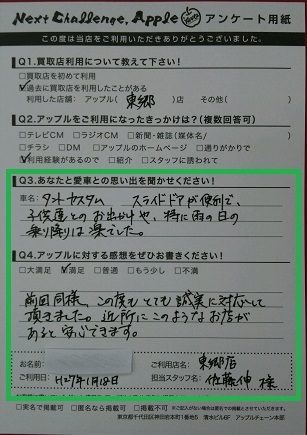 Next Challenge, Apple アンケート用紙
この度は当店をご利用いただきありがとうございました。
Q1.買取店利用について教えて下さい!
□買取店を初めて利用
☑過去に買取店を利用したことがある
利用した店舗: アップル( 東郷 )店 その他( )
Q2.アップルをご利用になったきっかけは?(複数回答可)
□テレビCM □ラジオCM □新聞・雑誌(媒体名/ )
□チラシ □DM □アップルのホームページ □通りがかりで
☑利用経験があるので □紹介 □スタッフに誘われて
Q3.あなたと愛車との思い出を聞かせください!
車名: タントカスタム スライドドアが便利で、
子供達とのお出かけや、特に雨の日の
乗り降りは楽でした。
Q4.アップルに対する感想をぜひお書きください!
□大満足 ☑満足 □普通 □もう少し □不満
前回同様、この度もとても誠実に対応して
頂きました。近所にこのようなお店が
あると安心できます。
お名前:
ご利用店名: 東郷店
ご利用日: H27年1月18日
担当スタッフ名: 佐藤伸 様
□実名で掲載可 □匿名なら掲載可 □掲載不可
東京都千代田区神田鍛冶町1番地3 清水ビル6F アップルチェーン本部